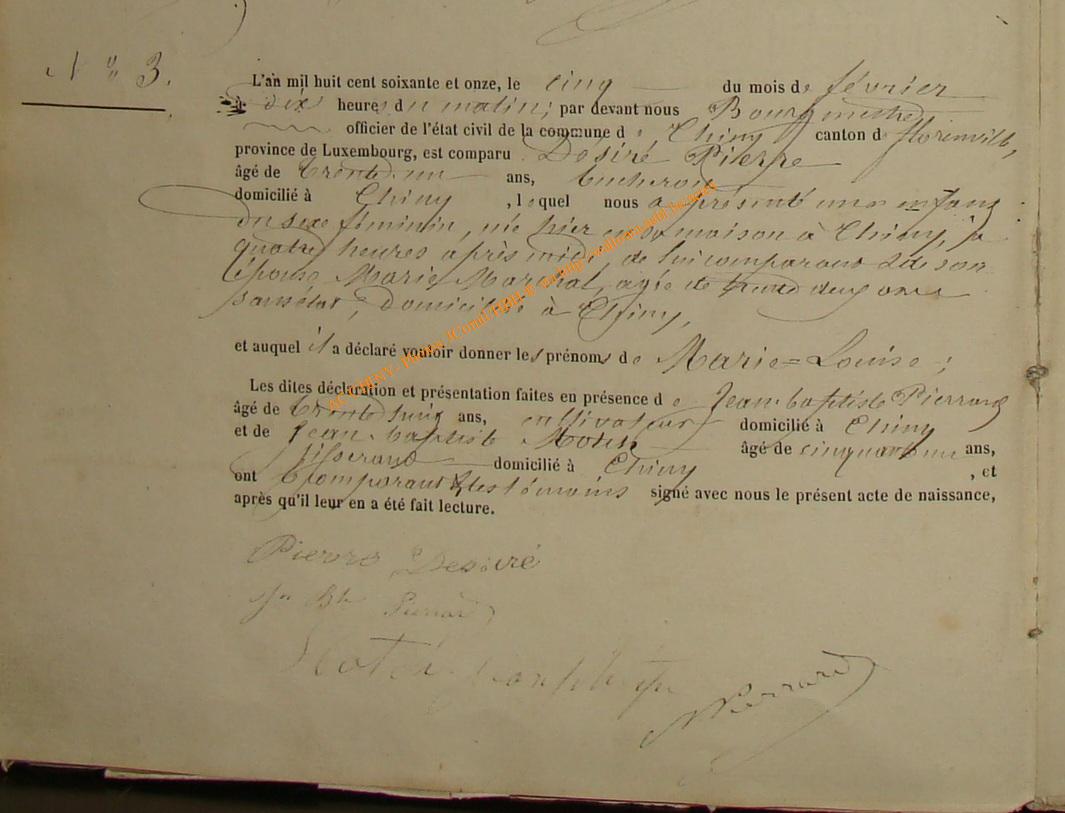 N° 3.
L'an mil huit cent soixante et onze, le cinq du mois de février
à dix heures du matin, par devant nous Bourgmestre
officier de l'état civil de la commune de Chiny canton de florenville,
province de Luxembourg, est comparu Désiré Pierre
âgé de trente un ans, bucheron
domicilié à Chiny, lequel nous a présenté un enfant
du sexe féminin, née hier en sa maison à Chiny, à
quatre heures après midi, de lui comparant & de son
épouse Marie Maréchal, agée de trente deux ans
sans état, domiciliée à Chiny,
et auquel il a déclaré vouloir donner les prénoms de Marie=Louise;
Les dites déclaration et présentation faites en présence de Jean baptiste Pierrard
âgé de trente huit ans, cultivateur domicilié à Chiny
et de Jean-baptiste âgé de cinquante un ans,
tisserand domicilié à Chiny, et
ont comparant & les témoins signé avec nous le présent acte de naissance,
après qu'il leur en a été fait lecture.
Pierre Desiré
Jn Bte Pierrard
Pierrard